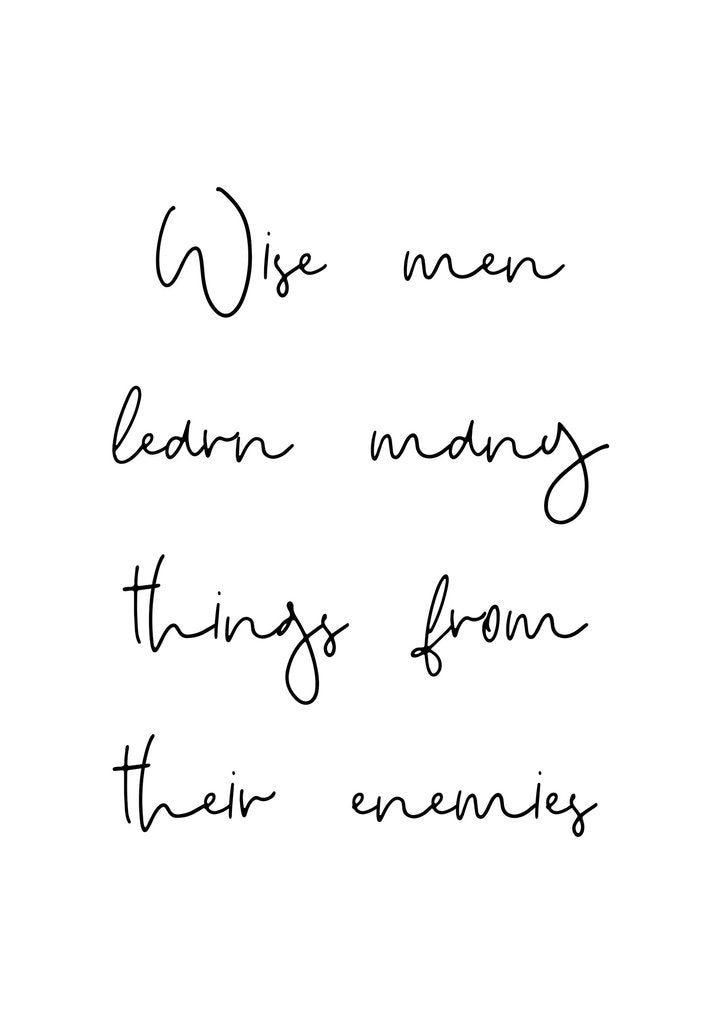 Wise men
learn many
things from
their enemies